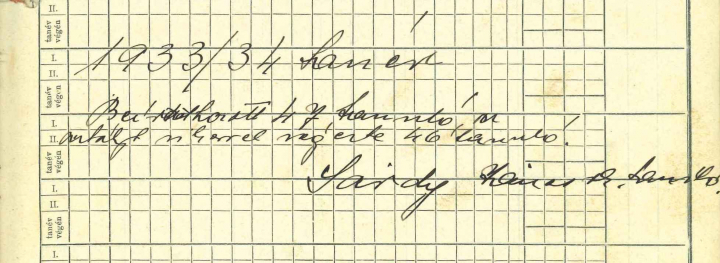 II.
tanév végén
1933/34 tanév
I.
II.
tanév végén
Beiratkozott 47 tanuló, az
I.
osztályt sikerrel végezte 46 tanuló.
II.
tanév végén
Sárdy János
I.
II.
tanév végén
I.